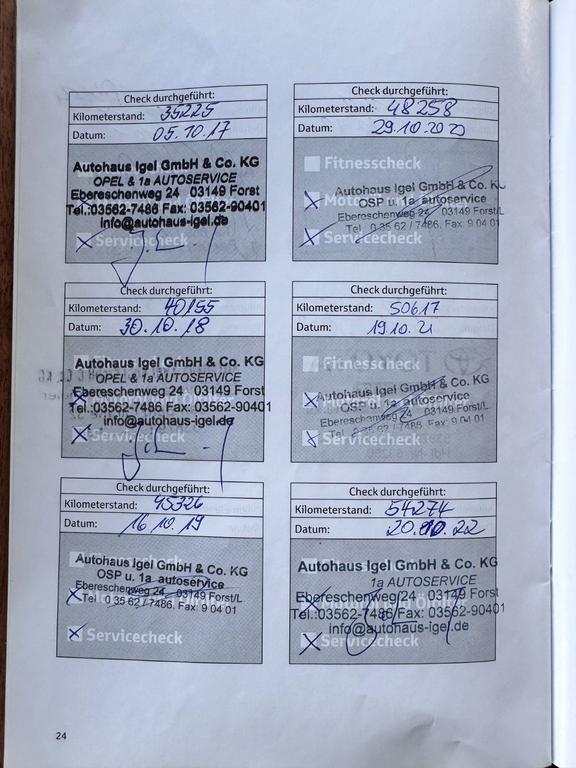 Check durchgeführt:
Kilometerstand: 35225
Datum: 05.10.17
Autohaus Igel GmbH & Co. KG
OPEL & 1a AUTOSERVICE
Ebereschenweg 24 03149 Forst
Tel.:03562-7486 Fax: 03562-90401
info@autohaus-igel.de
Servicecheck
Check durchgeführt:
Kilometerstand: 40155
Datum: 30.10.18
Autohaus Igel GmbH & Co. KG
OPEL & 1a AUTOSERVICE
Ebereschenweg 24 03149 Forst
Tel.:03562-7486 Fax: 03562-90401
info@autohaus-igel.de
Servicecheck
Check durchgeführt:
Kilometerstand: 45326
Datum: 16.10.19
Autohaus Igel GmbH & Co. KG
OSP u. 1a autoservice
Ebereschenweg 24 03149 Forst/L
Tel. 0 35 62 / 7486, Fax: 9 04 01
Servicecheck
Check durchgeführt:
Kilometerstand: 48258
Datum: 29.10.2020
Fitnesscheck
Autohaus Igel GmbH & Co. KG
OSP u. 1a autoservice
Ebereschenweg 24 03149 Forst/L
Tel. 0 35 62 / 7486, Fax: 9 04 01
Servicecheck
Check durchgeführt:
Kilometerstand: 50617
Datum: 19.10.21
Fitnesscheck
Autohaus Igel GmbH & Co. KG
OSP u. 1a autoservice
Ebereschenweg 24 03149 Forst/L
Tel. 0 35 62 / 7486, Fax: 9 04 01
Servicecheck
Check durchgeführt:
Kilometerstand: 54274
Datum: 20.10.22
Autohaus Igel GmbH & Co. KG
1a AUTOSERVICE
Ebereschenweg 24 03149 Forst
Tel.:03562-7486 Fax: 03562-90401
info@autohaus-igel.de
Servicecheck
24